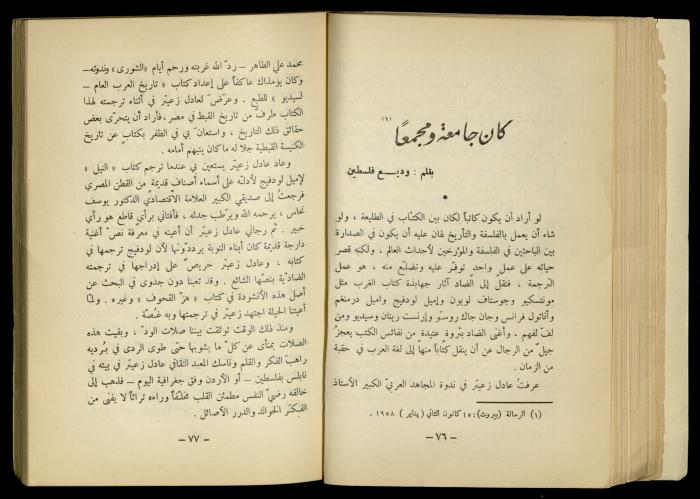 كان جامعة ومجمعاً (١)
بقلم : وديع فلسطين
لو أراد أن يكون كاتباً لكان بين الكتّاب في الطليعة ، ولو
شاء أن يعمل بالفلسفة والتأريخ لهان عليه أن يكون في الصدارة
بين الباحثين في الفلسفة والمؤرخين لأحداث العالم ، ولكنه قصر
حياته على عمل واحد توفّر عليه وتضلّع منه ، هو عمل
الترجمة ، فنقل إلى الضاد آثار جهابذة كتاب الغرب مثل
مونتسكيو وجوستاف لوبون وإميل لودفيج واميل درمنغم
وأناتول فرانس وجان جاك روسّو وإرنست رينان وسيديو ومن
لفّ لفهم ، وأغنى الضاد بثروة عتيدة من نفائس الكتب يعجز
جيل من الرجال عن أن ينقل كتاباً منها إلى لغة العرب في حقبة
من الزمان .
عرفتُ عادل زعيتر في ندوة المجاهد العربيّ الكبير الأستاذ
(١) الرسالة (بيروت) : ١٥ كانون الثاني ( يناير ) ١٩٥٨ .
— ٧٦ —
محمد علي الطاهر – ردّ الله غربته ورحم أيام «الشورى» وندوته –
وكان يومذاك عاكفاً على إعداد كتاب « تاريخ العرب العام –
لسيديو » للطبع . وعرض لعادل زعيتر في أثناء ترجمته لهذا
الكتاب طرف من تاريخ القبط في مصر ، فأراد أن يتحرّى بعض
حقائق ذلك التاريخ ، واستعان بي في الظفر بكتاب عن تاريخ
الكنيسة القبطية جلا له ما كان ينبهم أمامه .
وعاد عادل زعيتر يستعين في عندما ترجم كتاب « النيل »
لإميل لودفيج لأدلّه على أسماء أصناف قديمة من القطن المصري
فرجعتُ إلى صديقي الكبير العلامة الاقتصاديّ الدكتور يوسف
نحاس ، يرحمه الله ويرطّب جدثه ، فأفتاني برأي قاطع هو رأي
خبير . ثم رجاني عادل زعيتر أن أعينه في معرفة نصّ أغنية
دارجة قديمة كان أبناء النوبة يرددونها لأن لودفيج ترجمها في
كتابه ، وعادل زعيتر حريص على إدراجها في ترجمته
الضاديّة بنصّها الشائع . وقد تعبنا دون جدوى في البحث عن
أصل هذه الأنشودة في كتاب « هزّ القحوف » وغيره . ولمّا
أعيتنا الحيلة اجتهد زعيتر في ترجمتها وبه غصّة .
ومنذ ذلك الوقت توثقت بيننا صلات الودّ ، وبقيت هذه
الصلات بمنأى عن كلّ ما يشوبها حتى طوى الردى في بُرديه
راهب الفكر والقلم وناسك المعبد الثقافي عادل زعيتر في بيته في
نابلس بفلسطين – أو الأردن وفق جغرافية اليوم – فذهب إلى
خالقه رضيّ النفس مطمئن القلب مخلّفاً وراءه تراثاً لا يفنى من
الفكَر الخوالد والدرر الأصائل .
— ٧٧ —